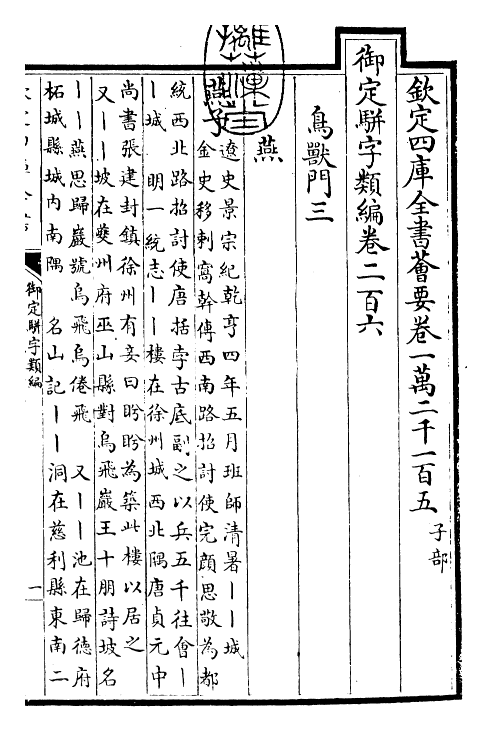 欽定四庫全書薈要卷一萬二千一百五 子部
御定駢字類編卷二百六
鳥獸門三
燕
燕子 遼史景宗紀乾亨四年五月班師清暑丨丨城
金史移剌窩斡傳西南路招討使完顔思敬為都
統西北路招討使唐括孛古底副之以兵五千往會丨
丨城 明一統志丨丨樓在徐州城西北隅唐貞元中
尚書張建封鎮徐州有妾曰盻盻為築此樓以居之
又丨丨坡在夔州府巫山縣對烏飛巖王十朋詩坡名
丨丨燕思歸巖號烏飛烏倦飛 又丨丨池在歸德府
柘城縣城内南隅 名山記丨丨洞在慈利縣東南二
御定駢字類編
一